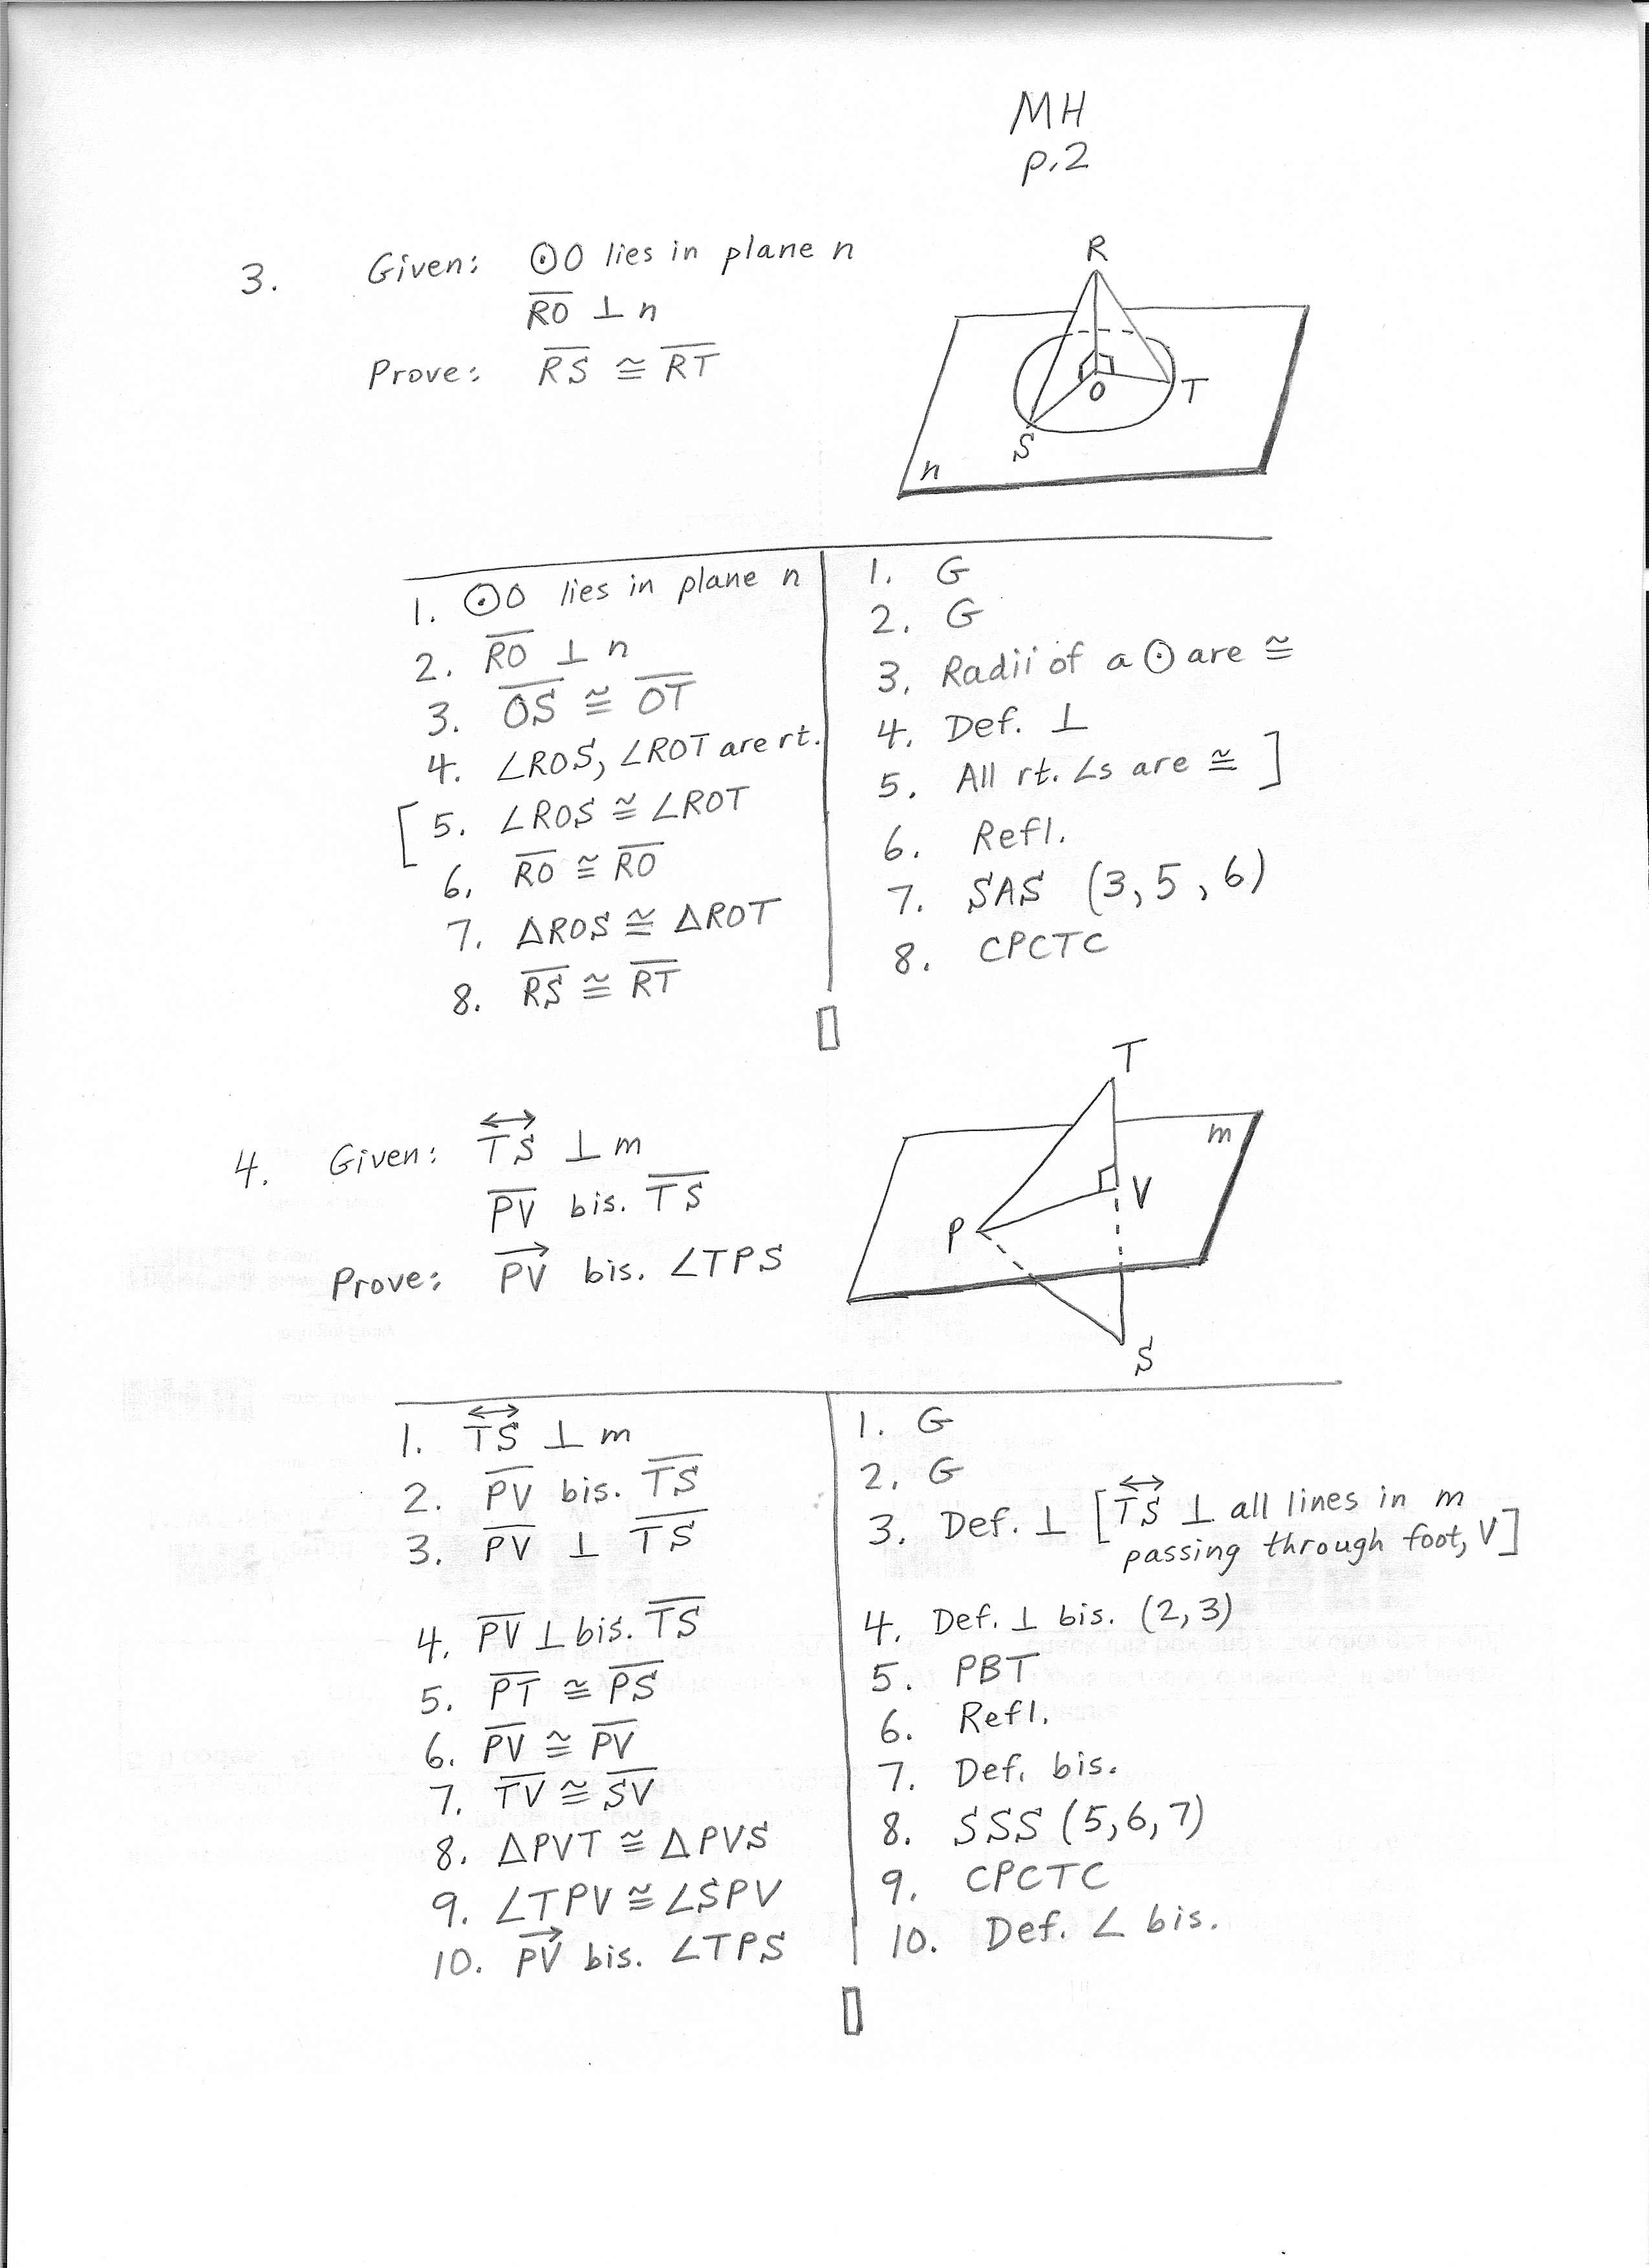 MH
p.2
3. Given: ⊙O lies in plane n
R̅O̅ ⊥ n
Prove: R̅S̅ ≅ R̅T̅
R
O
T
S
n
1. ⊙O lies in plane n | 1. G
2. R̅O̅ ⊥ n | 2. G
3. O̅S̅ ≅ O̅T̅ | 3. Radii of a ⊙ are ≅
4. ∠ROS, ∠ROT are rt. | 4. Def. ⊥
[ 5. ∠ROS ≅ ∠ROT | 5. All rt. ∠s are ≅ ]
6. R̅O̅ ≅ R̅O̅ | 6. Refl.
7. △ROS ≅ △ROT | 7. SAS (3, 5, 6)
8. R̅S̅ ≅ R̅T̅ | 8. CPCTC
4. Given: T͟S͟ ↔ ⊥ m
P̅V̅ bis. T̅S̅
Prove: PV→ bis. ∠TPS
T
m
V
P
S
1. TS↔ ⊥ m | 1. G
2. P̅V̅ bis. T̅S̅ | 2. G
3. P̅V̅ ⊥ T̅S̅ | 3. Def. ⊥ [TS↔ ⊥ all lines in m
passing through foot, V]
4. P̅V̅ ⊥ bis. T̅S̅ | 4. Def. ⊥ bis. (2, 3)
5. P̅T̅ ≅ P̅S̅ | 5. PBT
6. P̅V̅ ≅ P̅V̅ | 6. Refl.
7. T̅V̅ ≅ S̅V̅ | 7. Def. bis.
8. △PVT ≅ △PVS | 8. SSS (5, 6, 7)
9. ∠TPV ≅ ∠SPV | 9. CPCTC
10. PV→ bis. ∠TPS | 10. Def. ∠ bis.